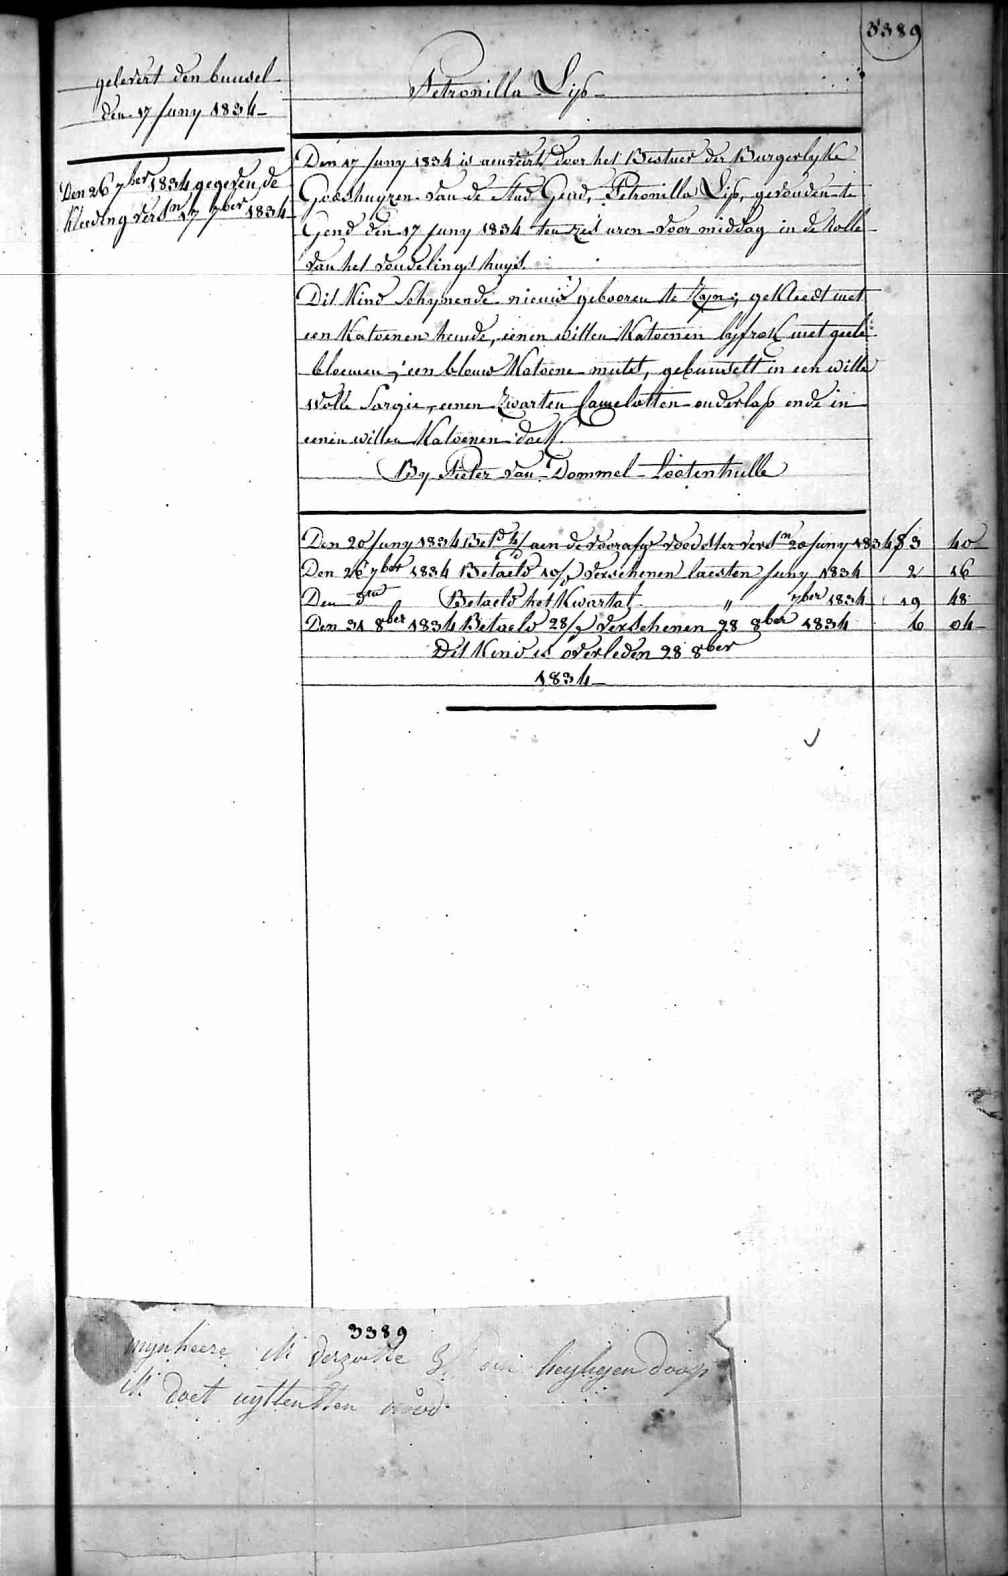 3389
gelevert den buusel
den 17 Juny 1834
Petronilla Lip
Den 26 7ber 1834 gegeven de
kleeding versn 17 7ber 1834
Den 17 Juny 1834 is aenveirt door het Bestuer der Burgerlyke
Godshuyzen van de Stad Gend, Petronilla Lip, gevonden te
Gend den 17 Juny 1834 ten zes uren voor middag in de Rolle
van het vondelingshuys.
Dit Kind Schynende nieuw gebooren te Zyn; gekleedt met
een Katoenen hemde, eenen witten Katoenen lyfrok met geele
bloemen, een blouw Katoene mutst, gebuuselt in een witte
wolle Sargie, eenen Zwarten Camelotten onderlap ende in
eenen witten Katoenen doek.
By Pieter van Dommel Lootenhulle
Den 20 Juny 1834 Betd aen de voorafg voedster versn 20 Juny 1834 f 3 40
Den 26 7ber 1834 Betaeld 10/ verschenen laesten Juny 1834 2 16
Den dto Betaeld het Kwartal " 7ber 1834 19 48
Den 31 8ber 1834 Betaeld 28/ verschenen 28 8ber 1834 6 04
Dit Kind is overleden 28 8ber
1834
3389
mynheere heyligen doop
doet